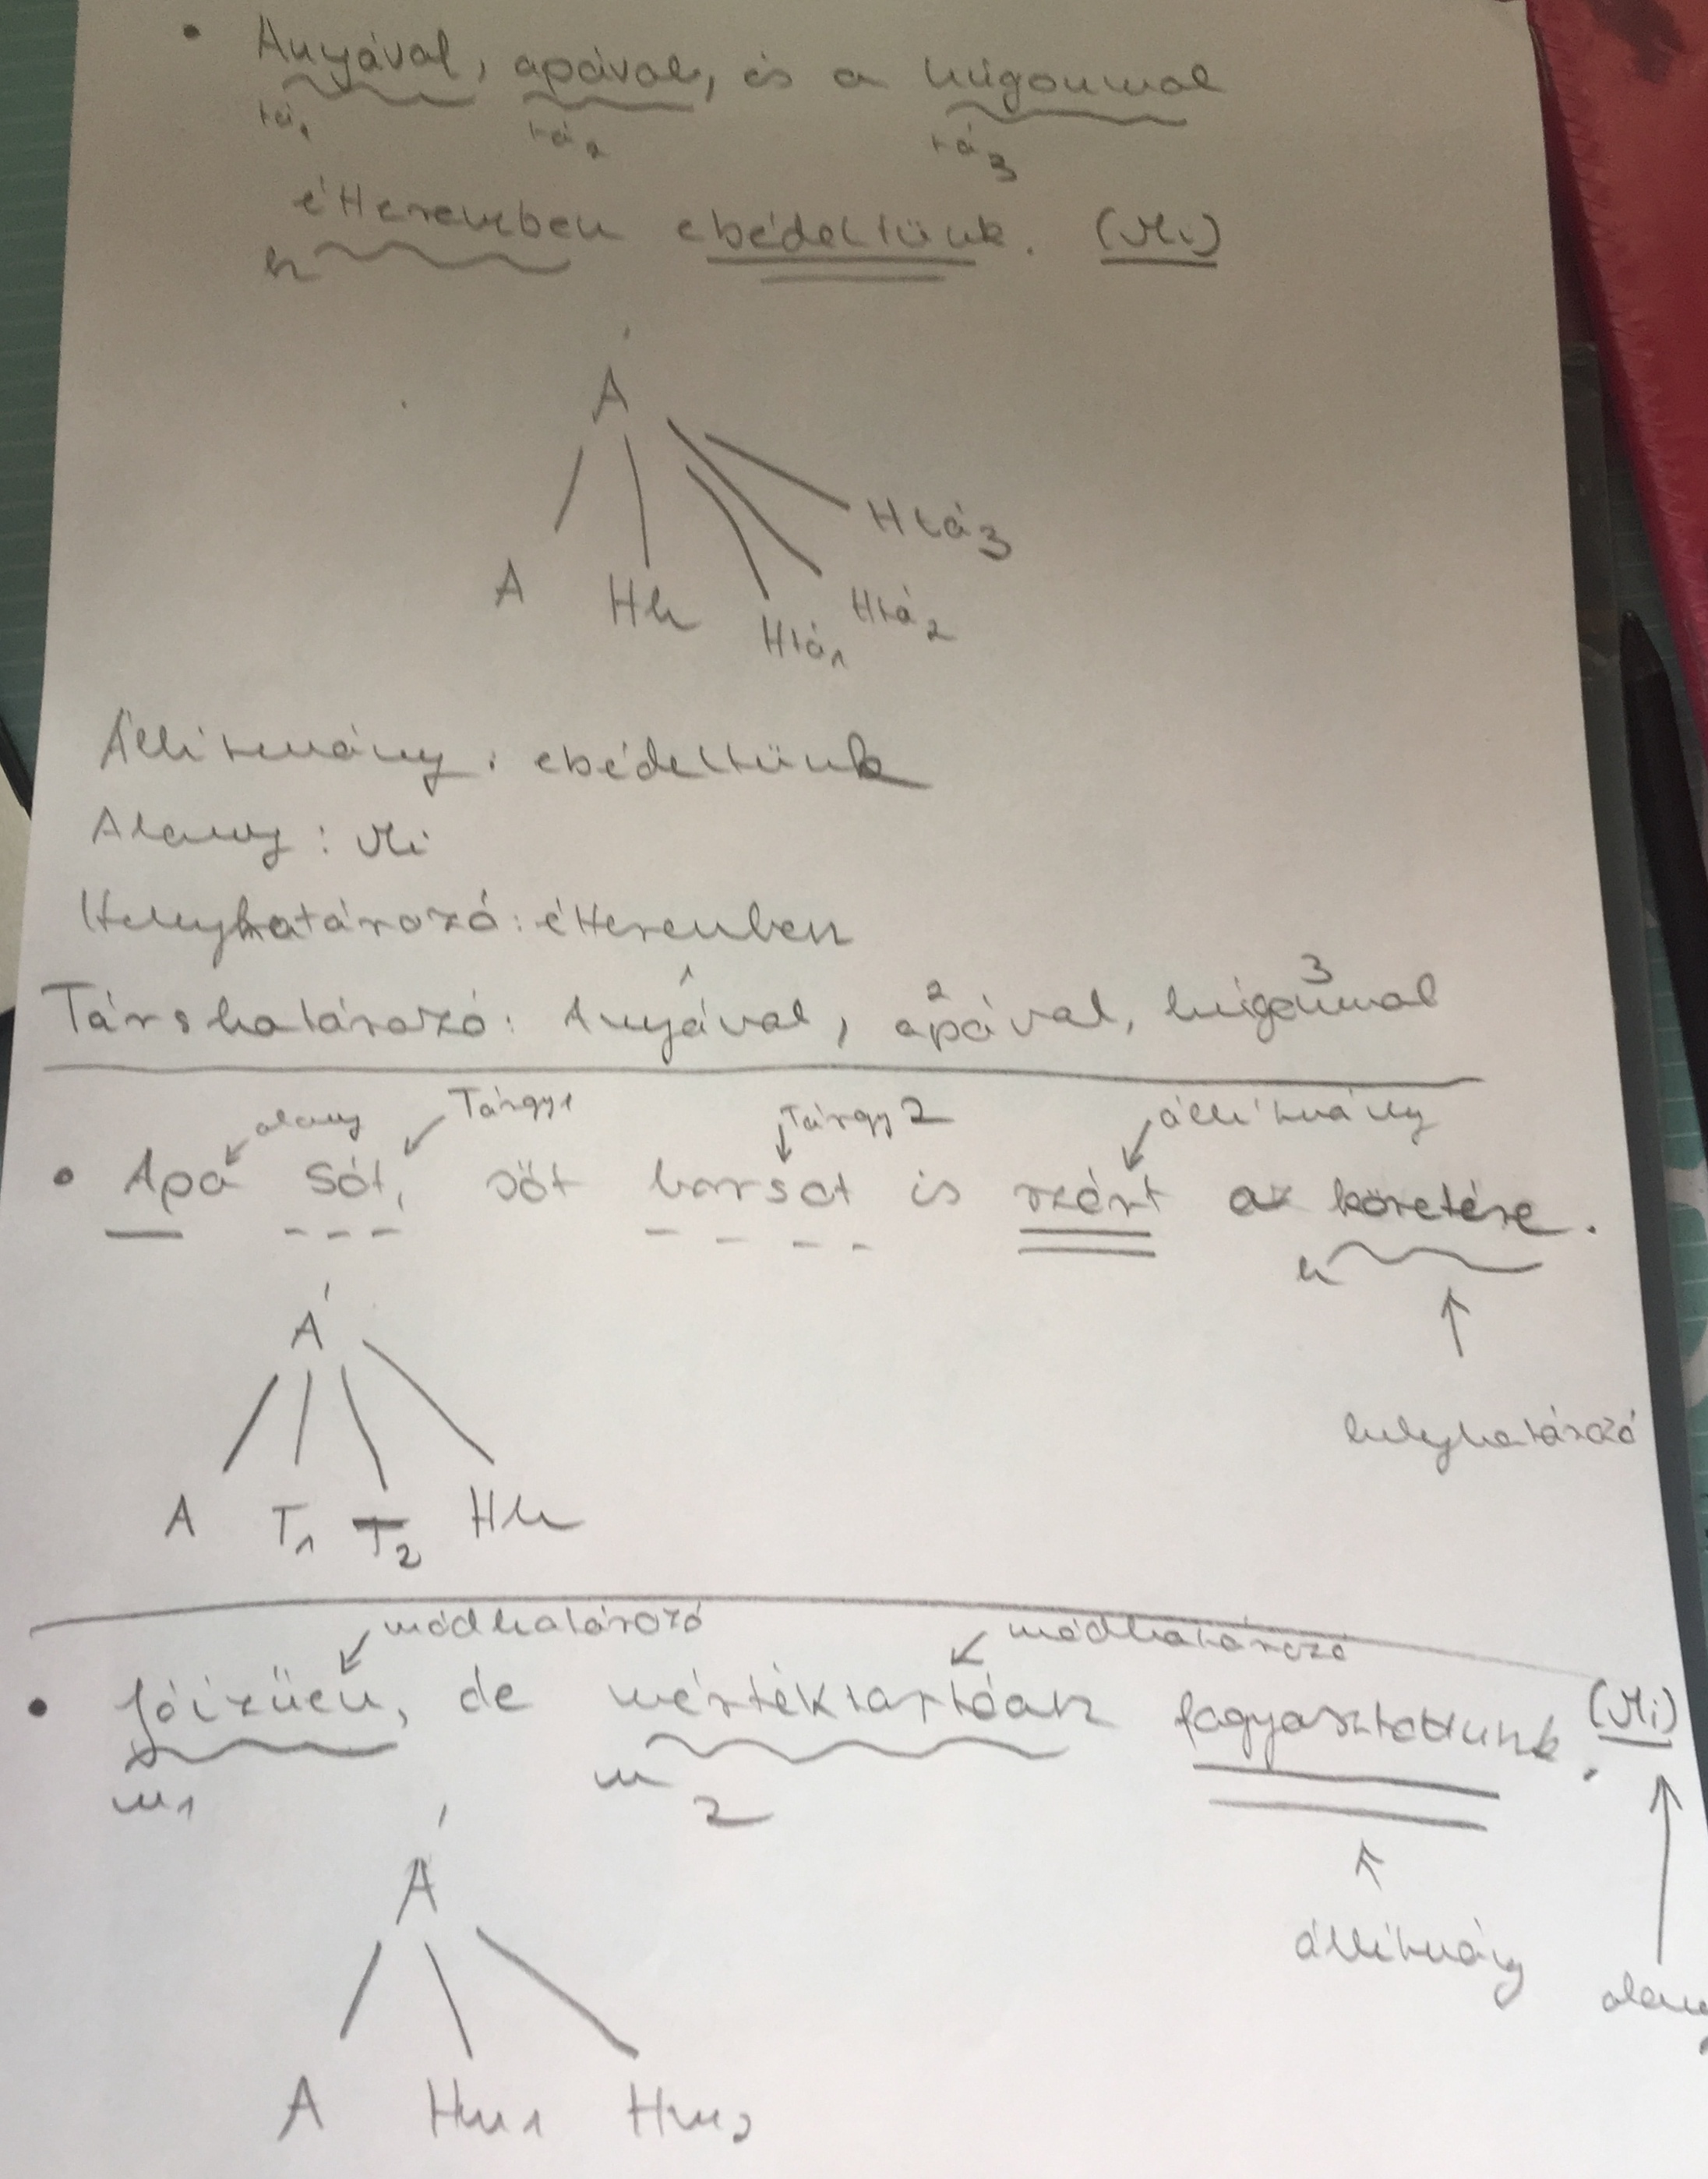 • Anyával, apával, és a húgommal
tá1 tá2 tá3
étteremben ebédeltünk. (Mi)
h
Á
Htá3
A Hh Htá1 Htá2
Állítmány: ebédeltünk
Alany: Mi
Helyhatározó: étteremben
1 2 3
Társhatározó: Anyával, apával, húgommal
alany Tárgy1 Tárgy2 állítmány
• Apa sót, sőt borsot is szórt az köretére.
h
Á
helyhatározó
A T1 T2 Hh
módhatározó módhatározó
• Jóízűen, de mértéktartóan fagyasztottunk. (Mi)
m1 m2
Á
állítmány
A Hm1 Hm2